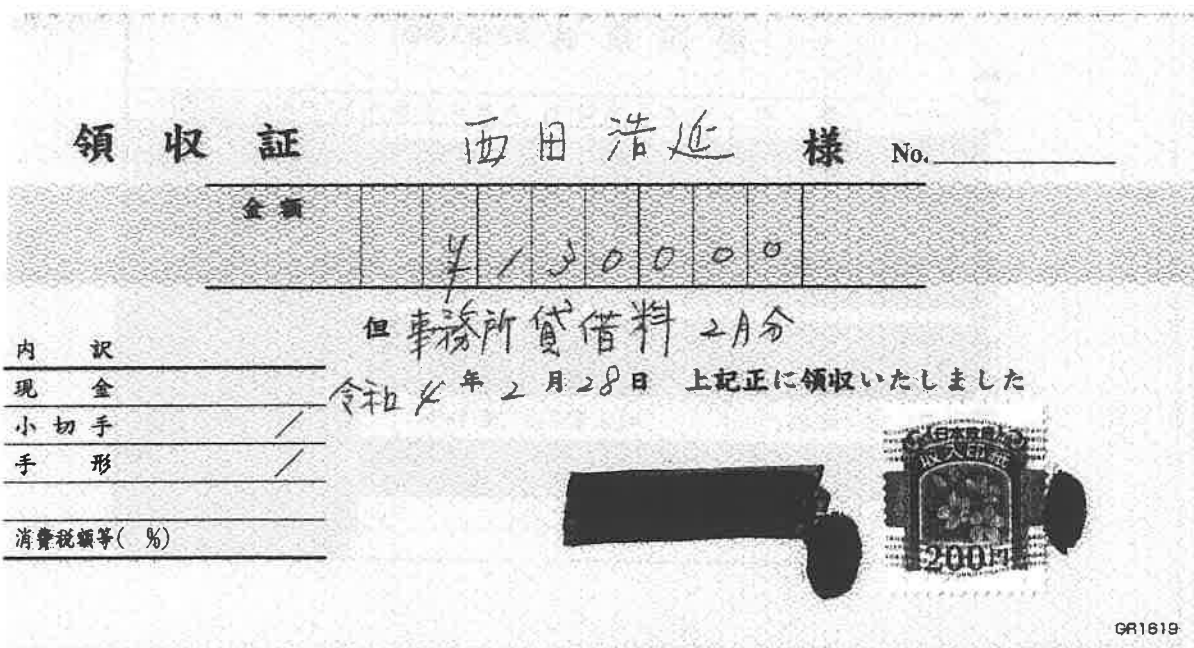 領収証 西田浩延 様 No.
金額 ¥130000
但 事務所賃借料 2月分
令和4年2月28日 上記正に領収いたしました
内訳
現金
小切手 /
手形 /
消費税額等( %)
日本政府
収入印紙
200円
GR1619